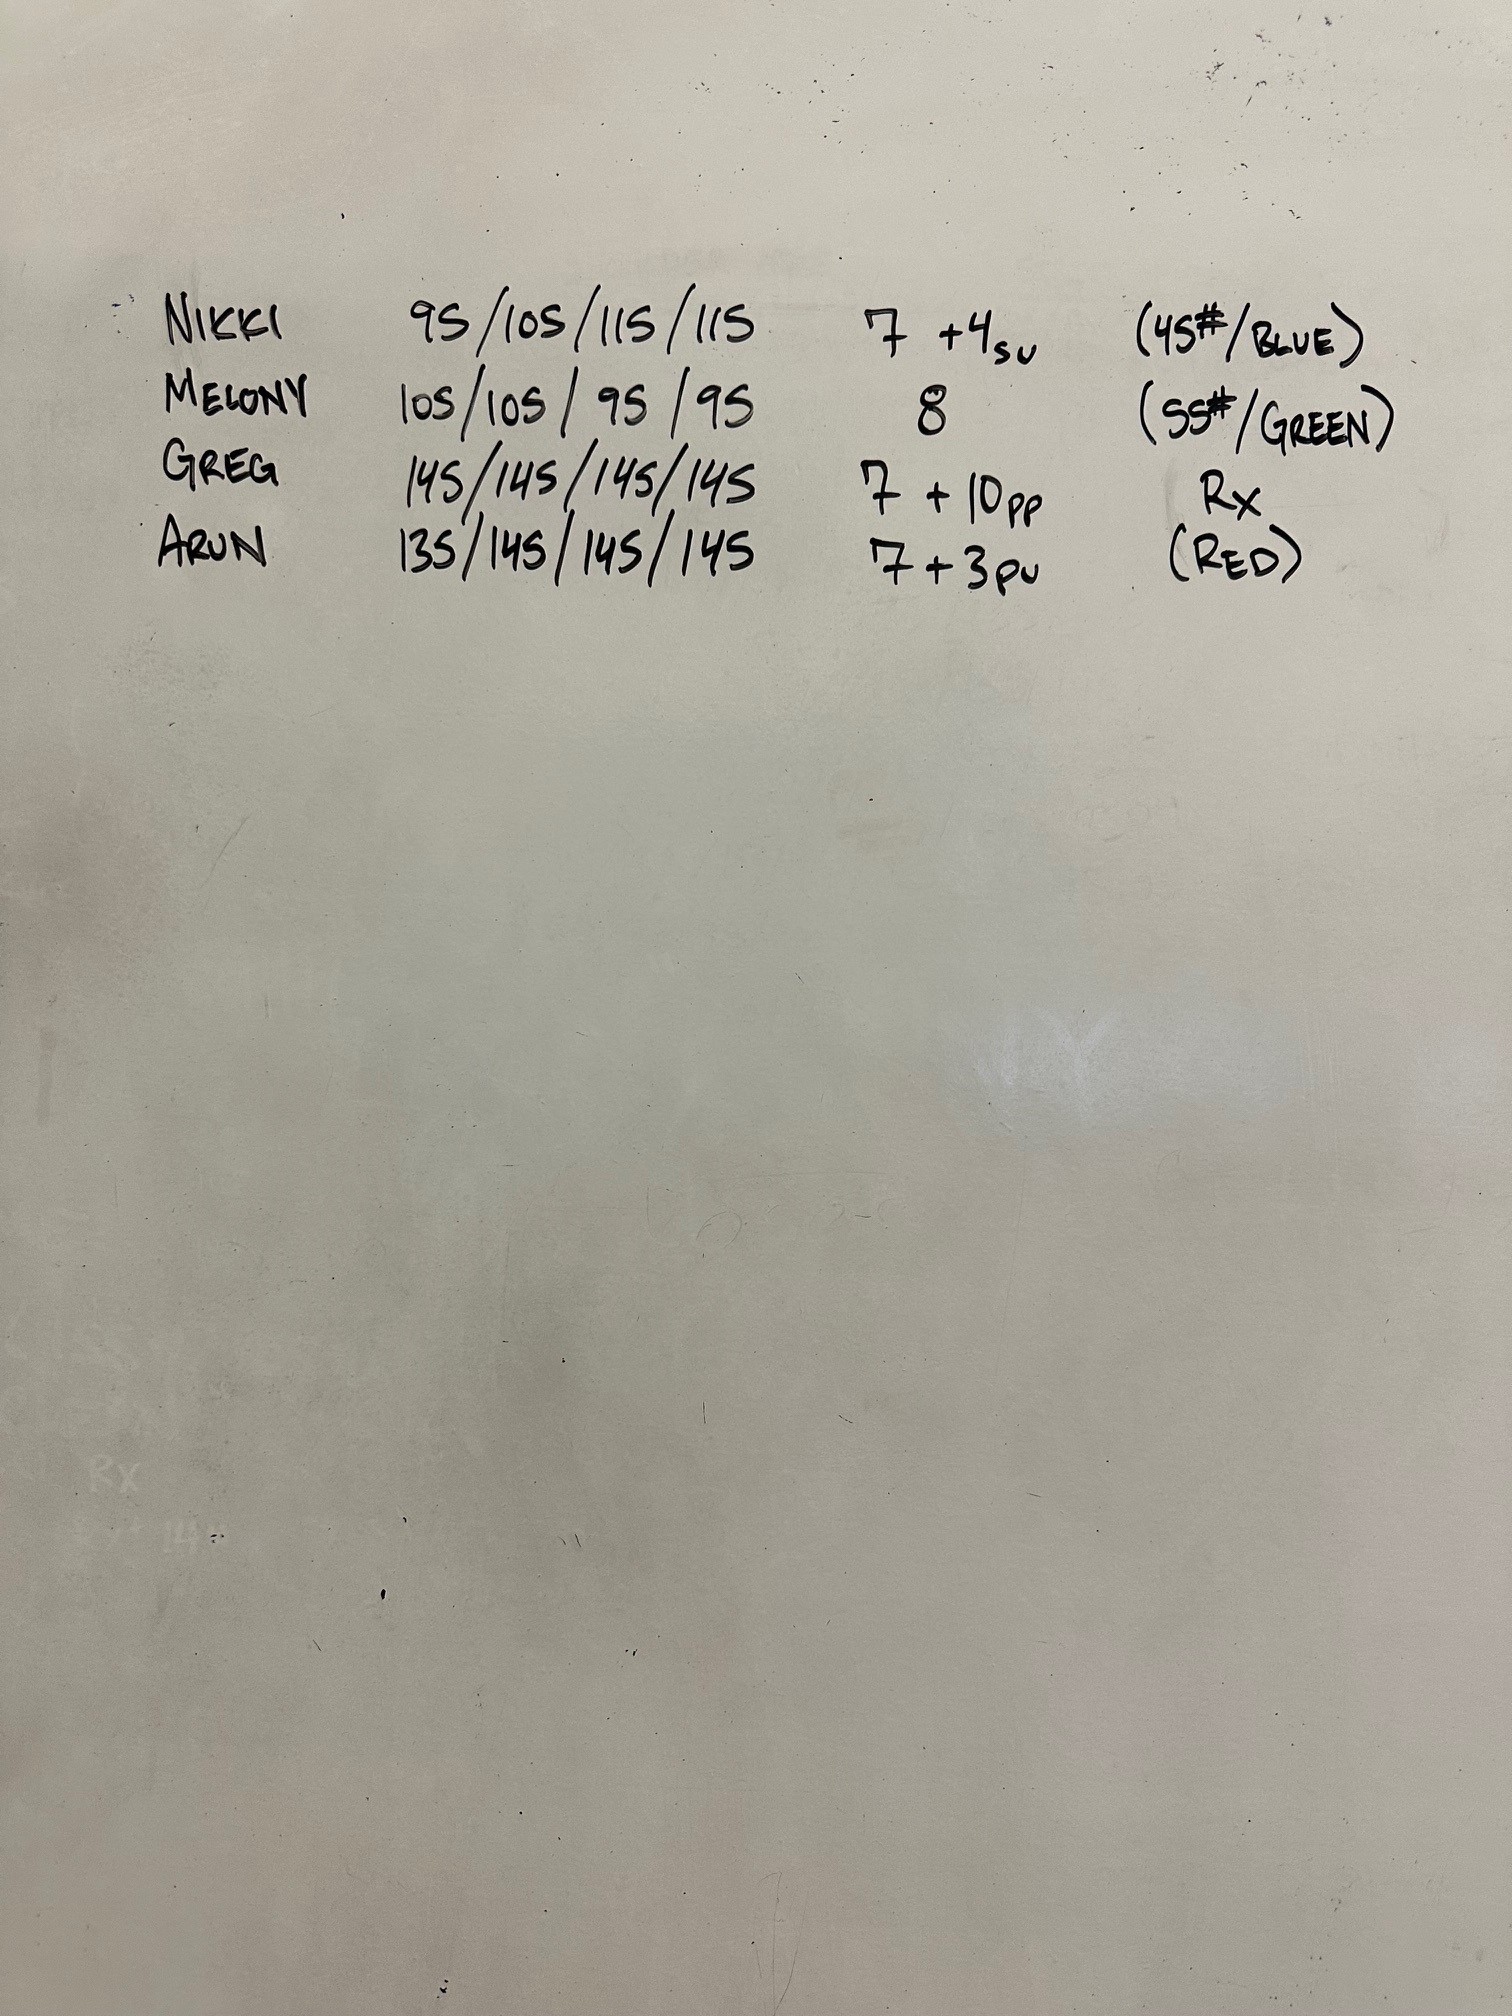 NIKKI 95/105/115/115 7 +4su (45#/BLUE)
MELONY 105/105/95/95 8 (55#/GREEN)
GREG 145/145/145/145 7 + 10pp Rx
ARUN 135/145/145/145 7 + 3pu (RED)
Rx